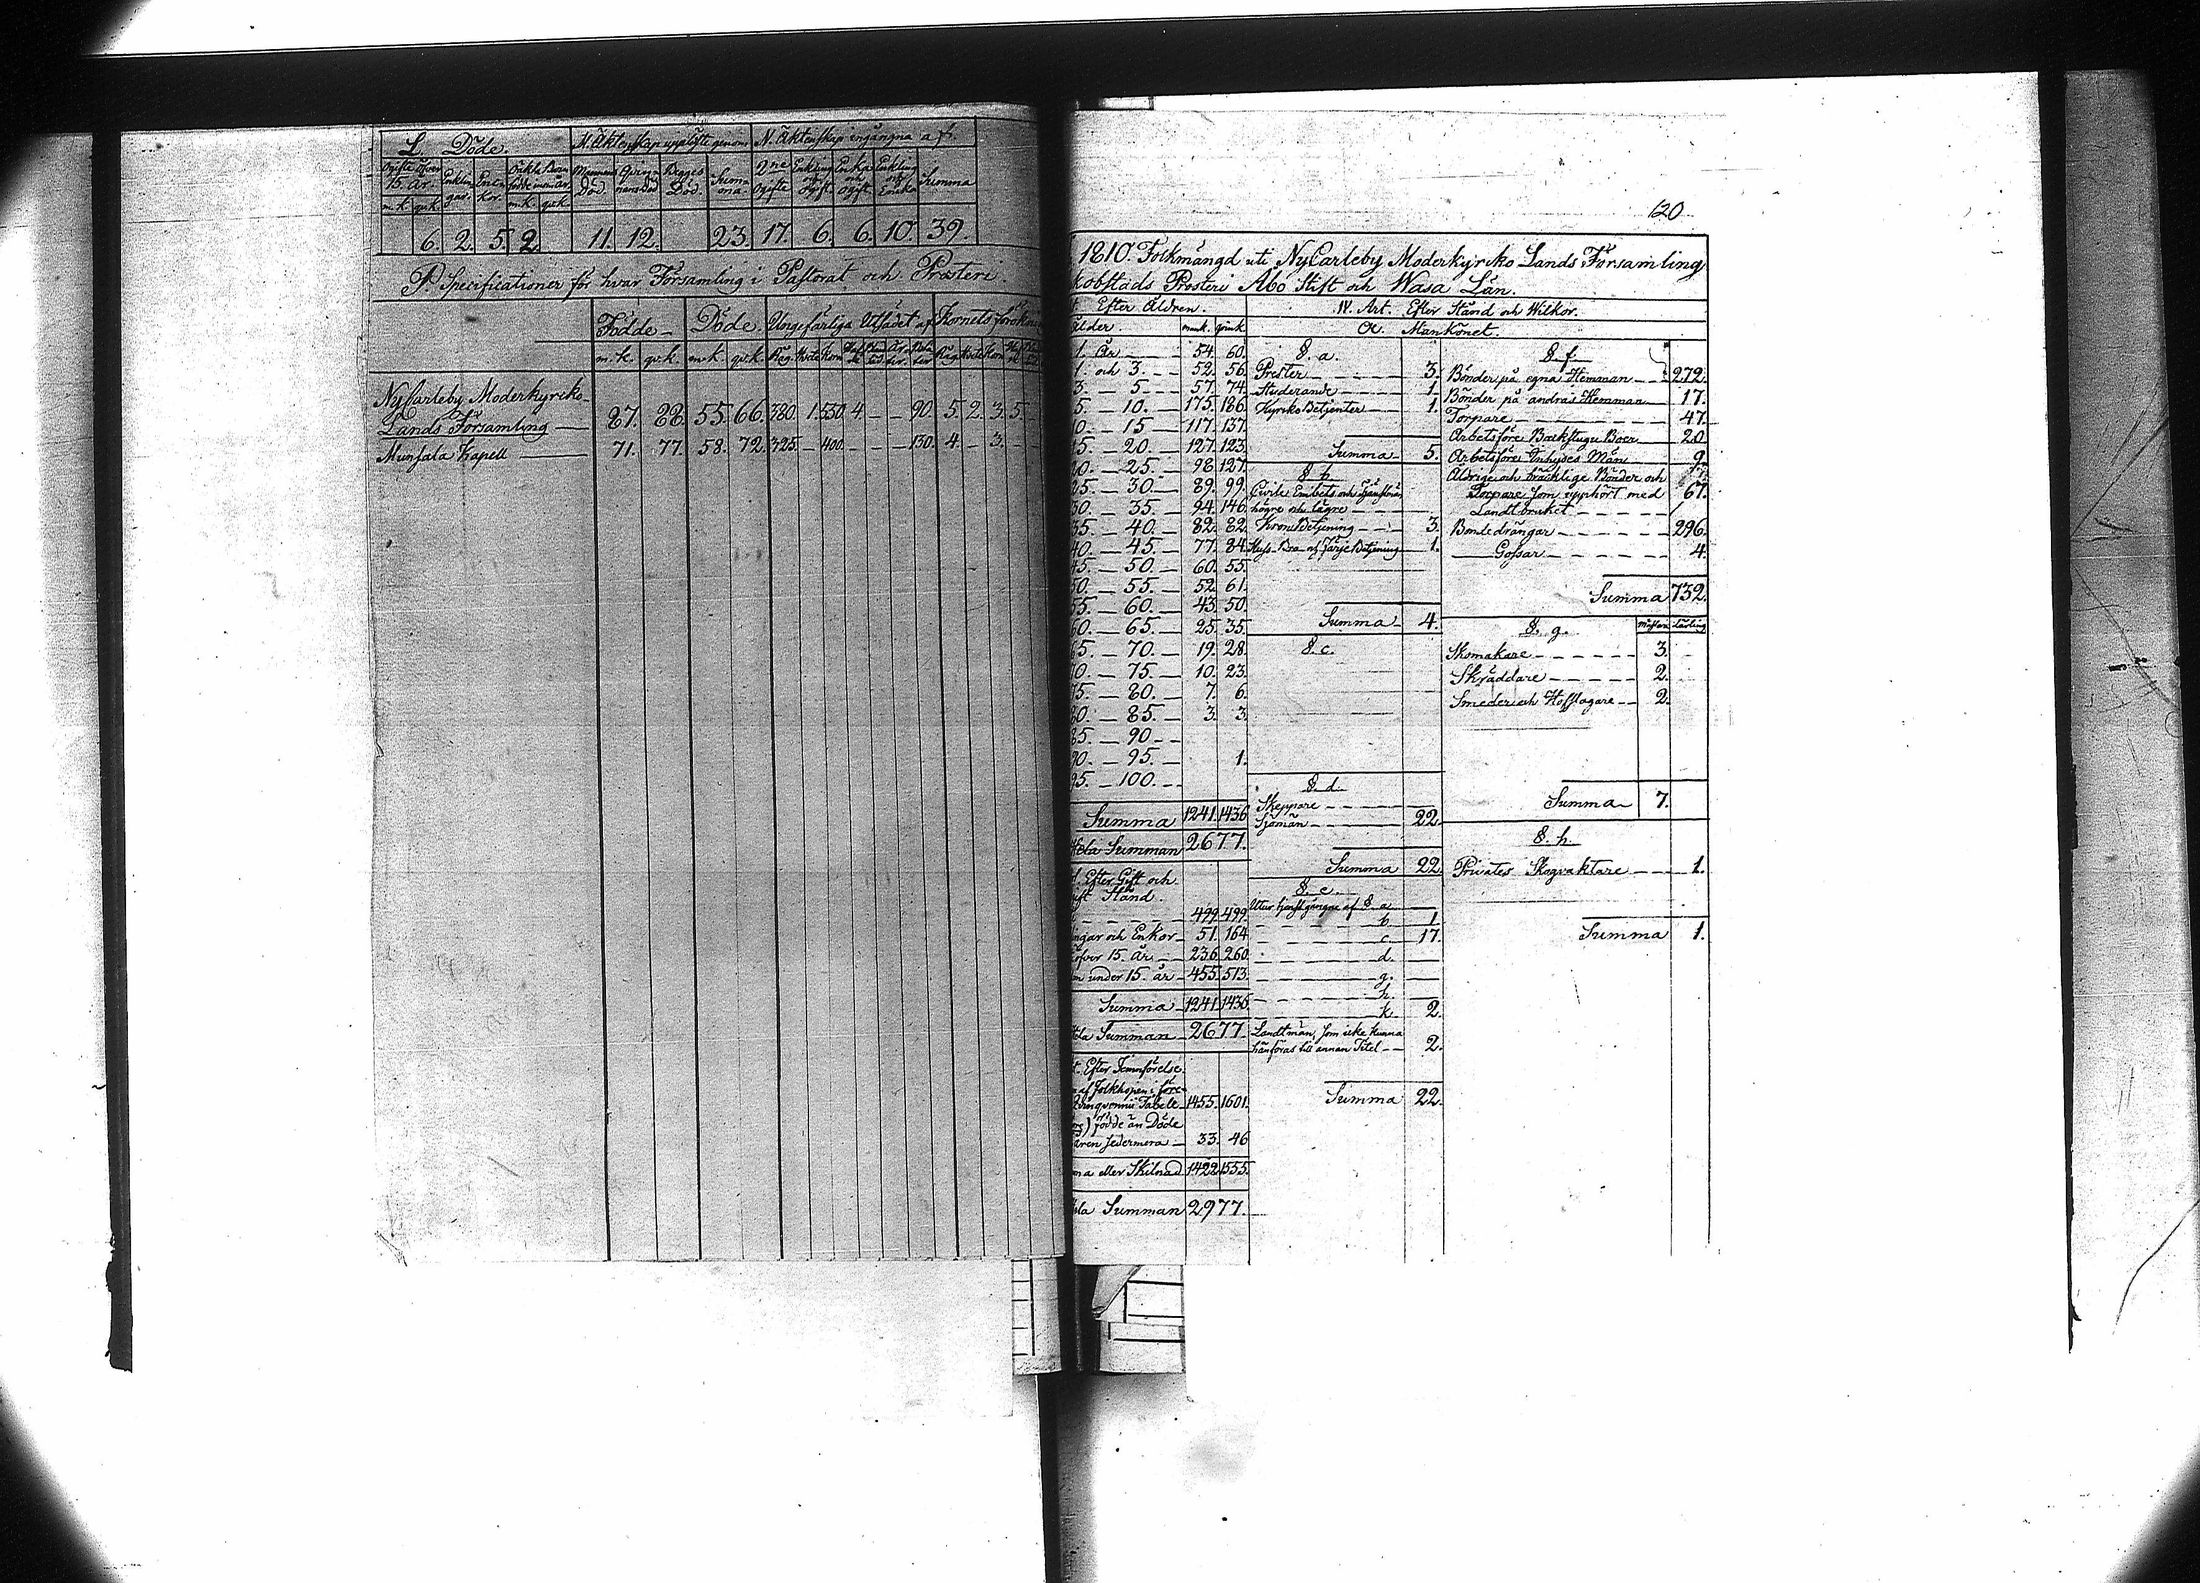 L. Döde. M. Äktenskap upplöste genom N. Äktenskap ingångna af
Ogifte öfver 15. år. Enklin gar. Enkor. Mannens Död Hustruns Död Begges Död Summa 2ne Ogifte Enkling och Ogift. Enka och Ogift. Enkling och Enka Summa
m.k. qv.k. m.k. qv.k.
6. 2. 5. 2. 11. 12. 23. 17. 6. 6. 10. 39.
P. Specificationer för hvar Församling i Pastorat och Prosteri.
Födde Döde. Ungefärliga Utsädet af Kornets
m.k. qv.k. m.k. qv.k. Råg Hvete Korn Råg Hvete Korn
NyCarleby Moderkyrko-
Lands Församling 87. 88. 55. 66. 380. 1. 550. 4 — — 90. 5. 2. 3. 5. —
Munsala Kapell 71. 77. 58. 72. 325. — 400. — — — 130. 4. — 3. —
120
1810. Folkmängd uti NyCarleby Moderkyrko Lands Församling
kobstads Prosteri Åbo Stift och Wasa Län.
Efter Åldren. IV. Art. Efter Stånd och Wilkor.
Ålder. mank. qvink. α. Mankönet.
1. År 54. 60.
1. och 3. 52. 56.
3 — 5 57. 74.
5. — 10. 175. 186.
10 — 15 117. 137.
15. — 20. 127. 123.
20. — 25. 98. 127.
25. — 30. 89. 99.
30. — 35. 94. 146.
35. — 40. 82. 82.
40. — 45. 77. 84.
45. — 50. 60. 55.
50. — 55. 52. 61.
55. — 60. 43. 50.
60. — 65. 25. 35.
65. — 70. 19. 28.
70. — 75. 10. 23.
75. — 80. 7. 6.
80. — 85. 3. 3.
85. — 90
90. — 95. 1.
95. — 100.
Summa 1241. 1436
Hela Summan 2677.
Efter Gift och
ift Stånd.
499. 499.
ingar och Enkor 51. 164
öfver 15. år 236. 260.
under 15. år 455. 513.
Summa 1241. 1436.
Hela Summan 2677.
Efter Jemnförelse
af Folkhopen i före-
Tabele 1455. 1601.
) födde än Döde
åren sedermera 33. 46
ma eller Skilnad 1422. 1555.
Hela Summan 2977.
§. a.
Prester 3.
Studerande 1.
Kyrko Betjenter 1.
Summa 5.
§. b.
Civile Embets och Tjenstemän
högre och lägre
Krono Betjening 3.
1.
Summa 4.
§. c.
§. d.
Skeppare
Sjömän 22.
Summa 22
§. e.
Utur tjenst gångne af §. a
b 1.
c 17.
d
g.
h.
k 2.
Landtmän som icke kunna
hänföras till annan Titel 2.
Summa 22.
§. f.
Bönder på egna Hemman 272.
Bönder på andras Hemman 17.
Torpare 47.
Arbetsföre Backstugu Boer 20
Arbetsföre Inhyses Män 9.
Åldrige och bräcklige Bönder och
Torpare som upphört med 67.
Landtbruket
Bondedrängar 296.
Gossar 4.
Summa 732.
§. g. Mästare Lärling
Skomakare 3.
Skräddare 2.
Smeder och Hofslagare 2.
Summa 7.
§. h.
Privates Skogvaktare 1.
Summa 1.